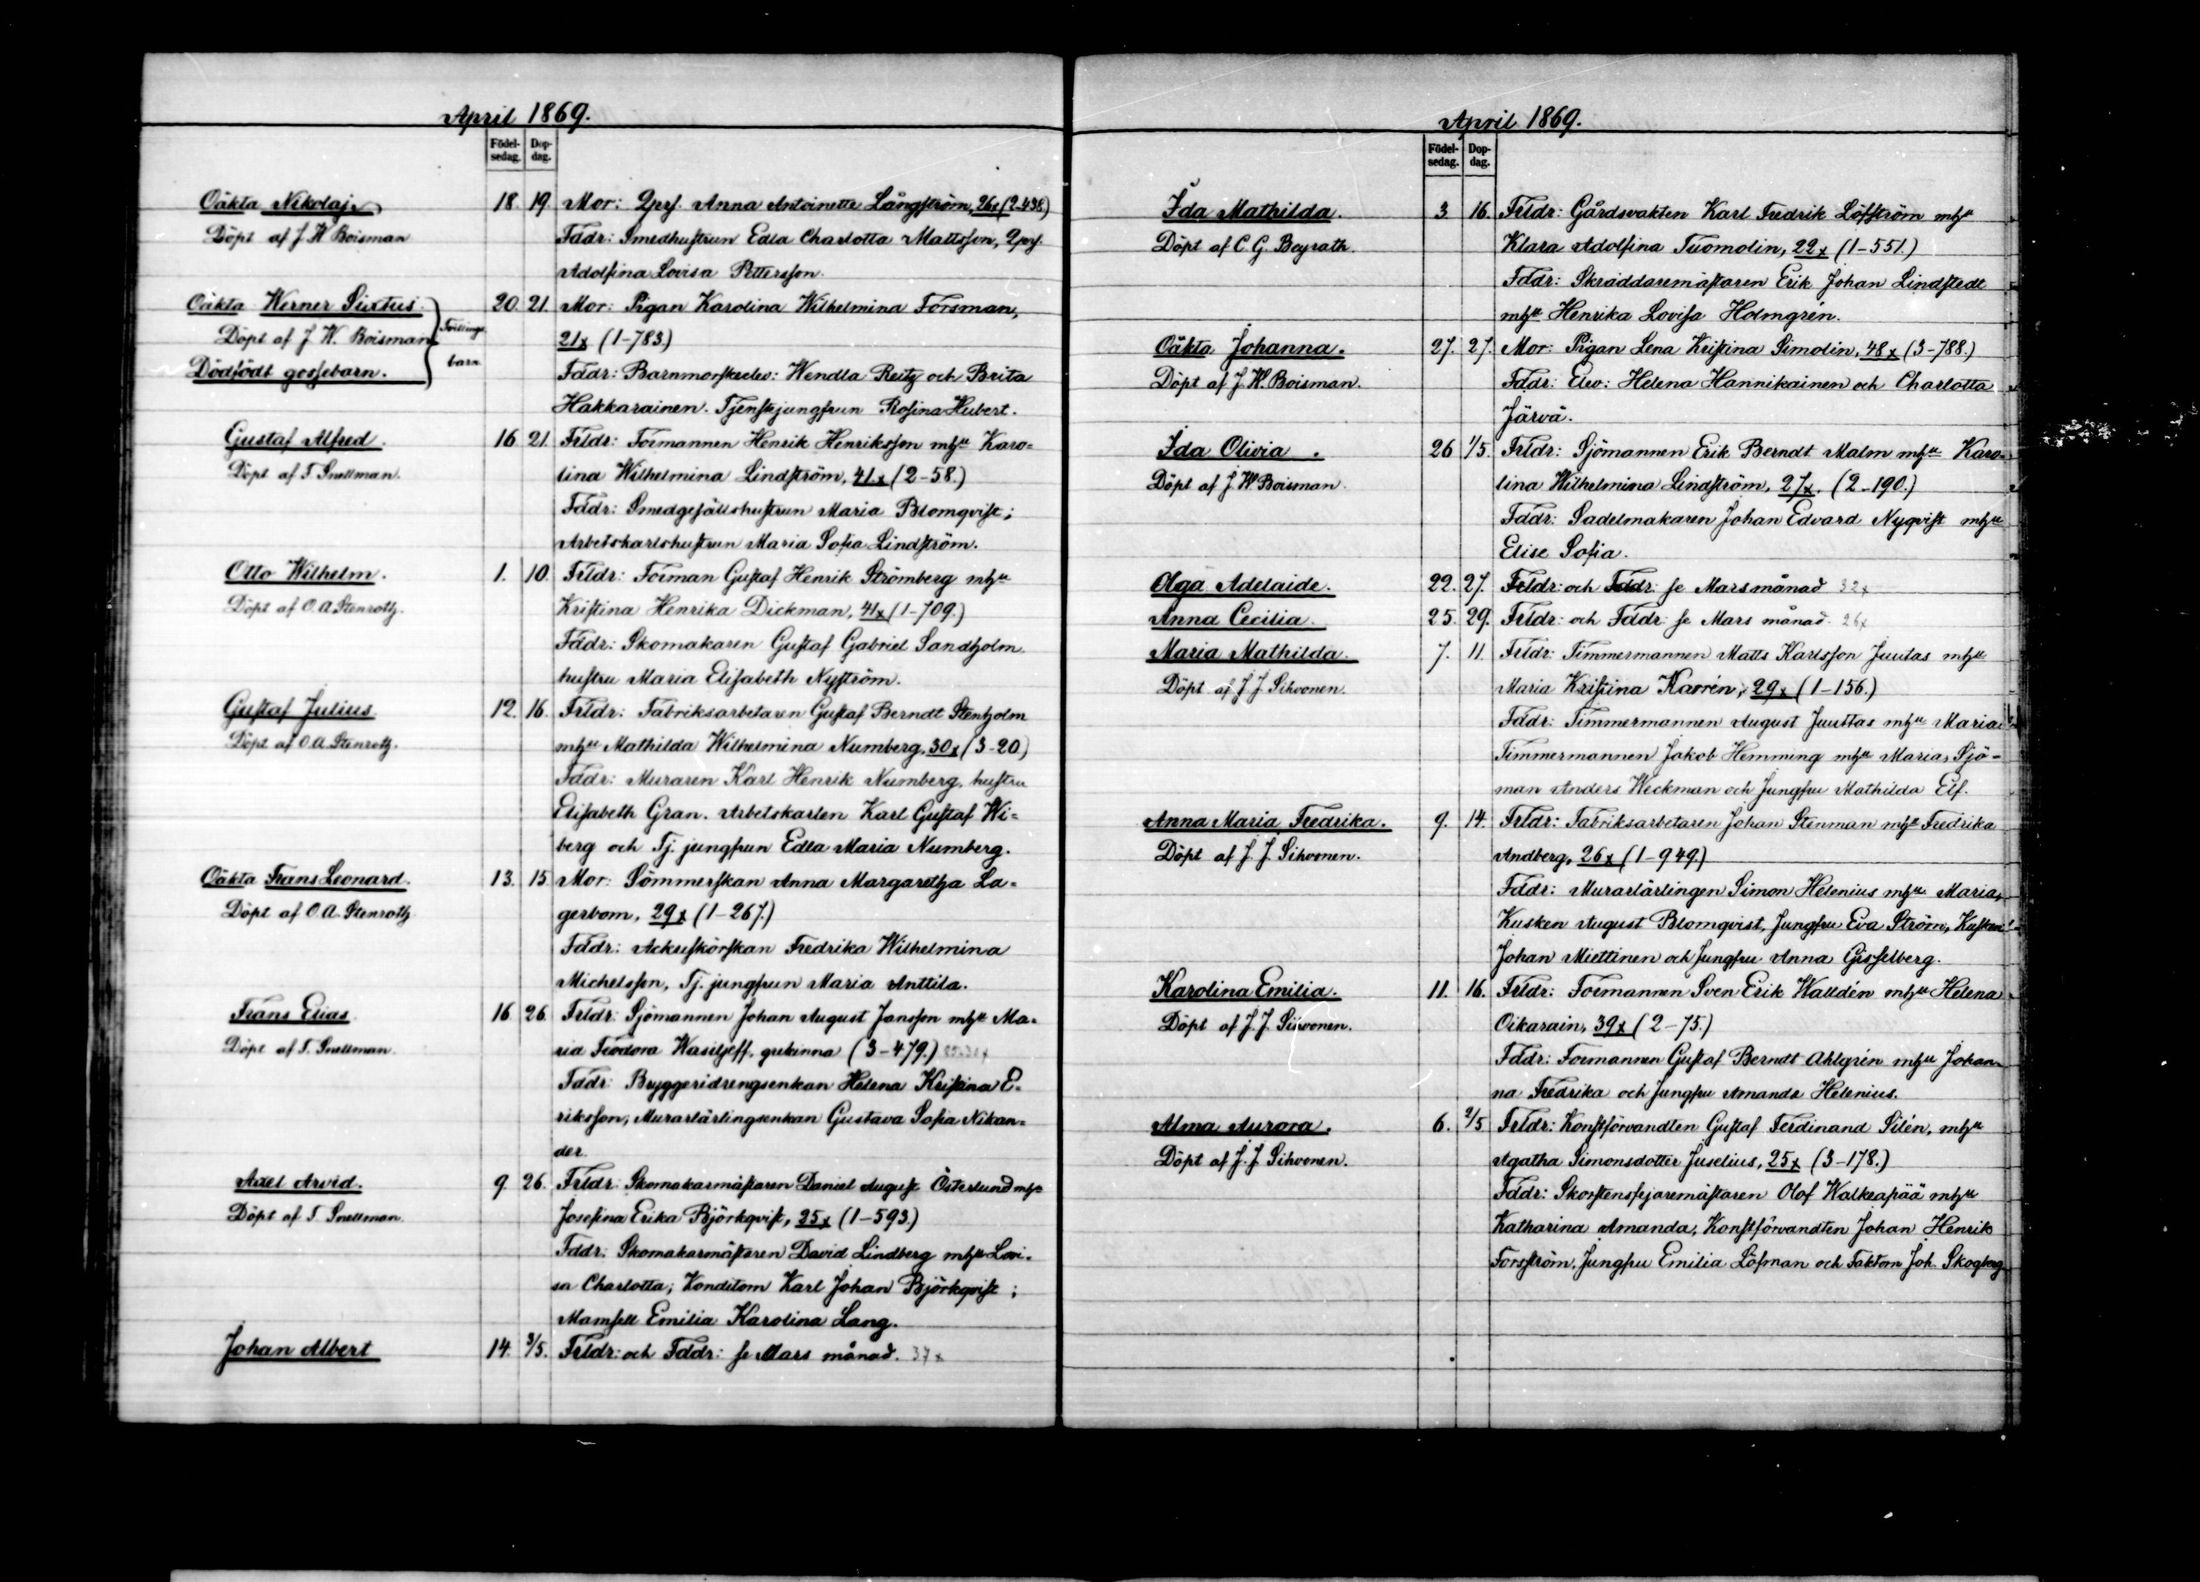 April 1869.
Födel-
sedag.
Dop-
dag.
Oäkta Nikolaj
Döpt af J W Boisman
18. 19. Mor: Qprs. Anna Antoinetta Långström, 26x (2-438)
Fddr: Smedhustrun Edla Charlotta Mattsson, Qprs.
Adolfina Lovisa Pettersson.
Oäkta Werner Sixtus.
Döpt af J. W. Boisman
Dödfödt gossebarn.
Tvillings
barn
20. 21. Mor: Pigan Karolina Wilhelmina Forsman,
21x (1-783.)
Fddr: Barnmorskeelev: Wendla Reitz och Brita
Hakkarainen. Tjenstejungfrun Rosina Hubert.
Gustaf Alfred.
Döpt af T. Snellman.
16 21. Frldr: Formannen Henrik Henriksson mhu Karo=
lina Wilhelmina Lindström, 41x (2-58.)
Fddr: Smedgesällshustrun Maria Blomqvist;
Arbetskarlshustrun Maria Sofia Lindström.
Otto Wilhelm.
Döpt af O. A. Stenroth.
1. 10. Frldr: Forman Gustaf Henrik Strömberg mhu
Kristina Henrika Dickman, 41x (1-709.)
Fddr: Skomakaren Gustaf Gabriel Sandholm
hustru Maria Elisabeth Nyström.
Gustaf Julius
Döpt af O. A. Stenroth.
12. 16. Frldr: Fabriksarbetaren Gustaf Berndt Stenholm
mhu Mathilda Wilhelmina Numberg, 30x (3-20.)
Fddr: Muraren Karl Henrik Numberg, hustru
Elisabeth Gran. Arbetskarlen Karl Gustaf Wi=
berg och Tj. jungfrun Edla Maria Numberg.
Oäkta Frans Leonard.
Döpt af O. A. Stenroth
13. 15. Mor: Sömmerskan Anna Margaretha La=
gerbom, 29x (1-267.)
Fddr: Ackuskörskan Fredrika Wilhelmina
Michelsson, Tj. jungfrun Maria Anttila.
Frans Elias.
Döpt af T. Snellman.
16 26. Frldr: Sjömannen Johan August Jansson mhu Ma=
ria Feodora Wasiljeff, grekinna (3-479.)
Fddr: Bryggeridrengsenkan Helena Kristina E=
riksson, Murarlärlingsenkan Gustava Sofia Nikan=
der.
Axel Arvid.
Döpt af T. Snellman.
9. 26. Frldr: Skomakarmästaren Daniel August Österlund mhu
Josefina Erika Björkqvist, 35x (1-593.)
Fddr: Skomakarmästaren David Lindberg mhu Lovi=
sa Charlotta; Konditorn Karl Johan Björkqvist;
Mamsell Emilia Karolina Lang.
Johan Albert
14. 3/5. Frldr: och Fddr: se Mars månad. 37x
April 1869.
Födel-
sedag.
Dop-
dag.
Ida Mathilda.
Döpt af C. G. Beyrath.
3 16. Frldr: Gårdsvakten Karl Fredrik Löfström mhu
Klara Adolfina Tuomolin, 22x (1-551.)
Fddr: Skräddaremästaren Erik Johan Lindstedt
mhu Henrika Lovisa Holmgrén.
Oäkta Johanna.
Döpt af J. W. Boisman.
27. 27. Mor: Pigan Lena Kristina Simolin, 48x (3-788.)
Fddr: Elev: Helena Hannikainen och Charlotta
Järvä.
Ida Olivia.
Döpt af J. W. Boisman.
26 1/5. Frldr: Sjömannen Erik Berndt Malm mhu Karo=
lina Wilhelmina Lindström, 27x. (2-190.)
Fddr: Sadelmakaren Johan Edvard Nyqvist mhu
Elise Sofia.
Olga Adelaide.
22. 27. Frldr: och Fddr: se Marsmånad 32x
Anna Cecilia.
25. 29. Frldr: och Fddr: se Mars månad. 26x
Maria Mathilda.
Döpt af J. J. Sihvonen.
7. 11. Frldr: Timmermannen Matts Karlsson Juutas mhu
Maria Kristina Karrén, 29x (1-156.)
Fddr: Timmermannen August Juuttas mhu Maria,
Timmermannen Jakob Hemming mhu Maria, Sjö-
man Anders Weckman och Jungfru Mathilda Elf.
Anna Maria Fredrika.
Döpt af J. J. Sihvonen.
9. 14. Frldr: Fabriksarbetaren Johan Stenman mhu Fredrika
Andberg, 26x (1-949.)
Fddr: Murarlärlingen Simon Helenius mhu Maria,
Kusken August Blomqvist, Jungfru Eva Ström, Kusken
Johan Miettinen och Jungfru Anna Gisselberg.
Karolina Emilia.
Döpt af J. J. Sihvonen.
11. 16. Frldr: Formannen Sven Erik Walldén mhu Helena
Oikarain, 39x (2-75.)
Fddr: Formannen Gustaf Berndt Ahlgrén mhu Johan=
na Fredrika och Jungfru Amanda Helenius.
Alma Aurora.
Döpt af J. J. Sihvonen.
6. 2/5 Frldr: Konstförvandten Gustaf Ferdinand Silén, mhu
Agatha Simonsdotter Juselius, 25x (3-178.)
Fddr: Skorstensfejaremästaren Olof Walkeapää mhu
Katharina Amanda, Konstförvandten Johan Henrik
Forsström, Jungfru Emilia Löfman och Faktorn Joh. Skogberg